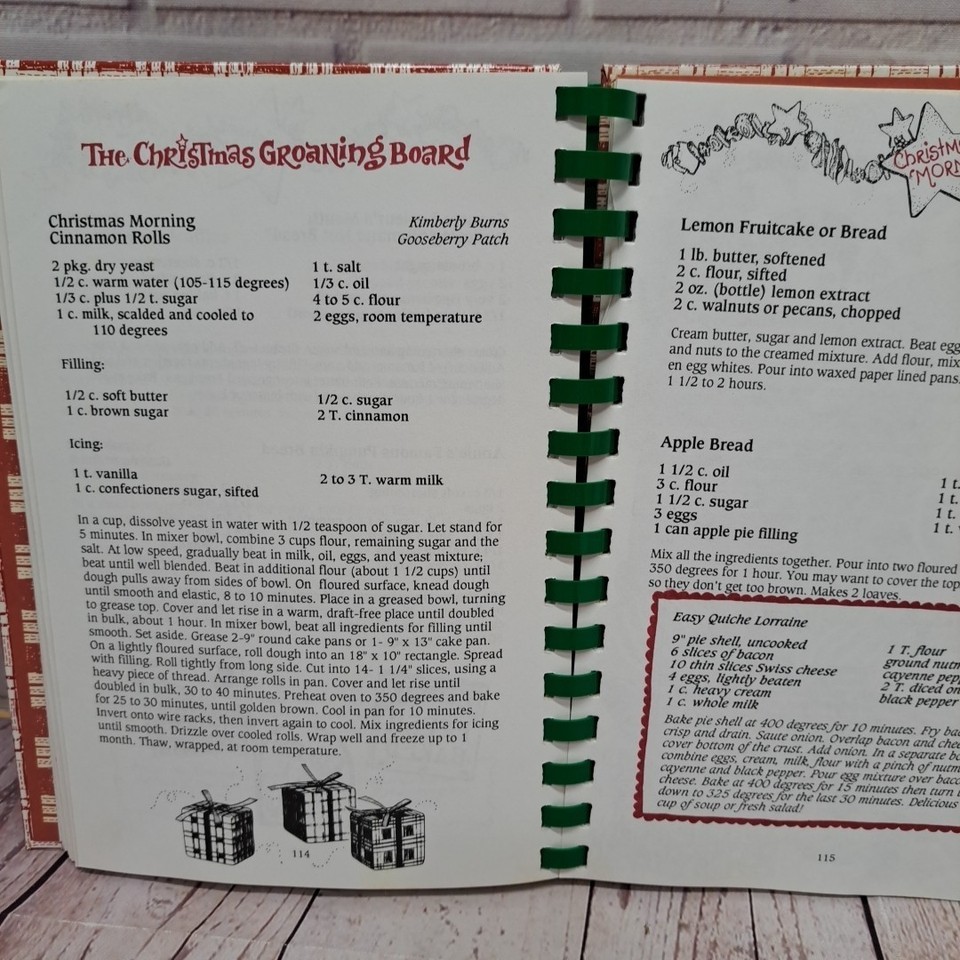 The Christmas Groaning Board
Christmas Morning
Cinnamon Rolls
Kimberly Burns
Gooseberry Patch
2 pkg. dry yeast
1/2 c. warm water (105-115 degrees)
1/3 c. plus 1/2 t. sugar
1 c. milk, scalded and cooled to
110 degrees
1 t. salt
1/3 c. oil
4 to 5 c. flour
2 eggs, room temperature
Filling:
1/2 c. soft butter
1 c. brown sugar
1/2 c. sugar
2 T. cinnamon
Icing:
1 t. vanilla
1 c. confectioners sugar, sifted
2 to 3 T. warm milk
In a cup, dissolve yeast in water with 1/2 teaspoon of sugar. Let stand for
5 minutes. In mixer bowl, combine 3 cups flour, remaining sugar and the
salt. At low speed, gradually beat in milk, oil, eggs, and yeast mixture;
beat until well blended. Beat in additional flour (about 1 1/2 cups) until
dough pulls away from sides of bowl. On floured surface, knead dough
until smooth and elastic, 8 to 10 minutes. Place in a greased bowl, turning
to grease top. Cover and let rise in a warm, draft-free place until doubled
in bulk, about 1 hour. In mixer bowl, beat all ingredients for filling until
smooth. Set aside. Grease 2-9" round cake pans or 1- 9" x 13" cake pan.
On a lightly floured surface, roll dough into an 18" x 10" rectangle. Spread
with filling. Roll tightly from long side. Cut into 14- 1 1/4" slices, using a
heavy piece of thread. Arrange rolls in pan. Cover and let rise until
doubled in bulk, 30 to 40 minutes. Preheat oven to 350 degrees and bake
for 25 to 30 minutes, until golden brown. Cool in pan for 10 minutes.
Invert onto wire racks, then invert again to cool. Mix ingredients for icing
until smooth. Drizzle over cooled rolls. Wrap well and freeze up to 1
month. Thaw, wrapped, at room temperature.
114
Christm
Morn
Lemon Fruitcake or Bread
1 lb. butter, softened
2 c. flour, sifted
2 oz. (bottle) lemon extract
2 c. walnuts or pecans, chopped
Cream butter, sugar and lemon extract. Beat egg
and nuts to the creamed mixture. Add flour, mix
en egg whites. Pour into waxed paper lined pans.
1 1/2 to 2 hours.
Apple Bread
1 1/2 c. oil
3 c. flour
1 1/2 c. sugar
3 eggs
1 can apple pie filling
1 t.
1 t.
1 t.
1 t.
Mix all the ingredients together. Pour into two floured
350 degrees for 1 hour. You may want to cover the top
so they don't get too brown. Makes 2 loaves.
Easy Quiche Lorraine
9" pie shell, uncooked
6 slices of bacon
10 thin slices Swiss cheese
4 eggs, lightly beaten
1 c. heavy cream
1 c. whole milk
1 T. flour
ground nutm
cayenne pepp
2 T. diced on
black pepper
Bake pie shell at 400 degrees for 10 minutes. Fry bac
crisp and drain. Saute onion. Overlap bacon and chee
cover bottom of the crust. Add onion. In a separate bo
combine eggs, cream, milk, flour with a pinch of nutm
cayenne and black pepper. Pour egg mixture over baco
cheese. Bake at 400 degrees for 15 minutes then turn
down to 325 degrees for the last 30 minutes. Delicious
cup of soup or fresh salad!
115